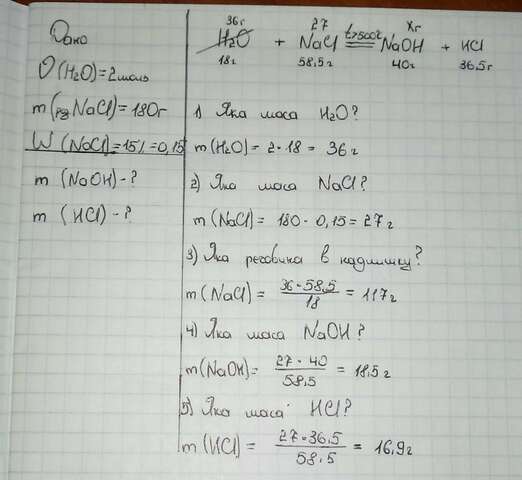 Дано
ν(H₂O)=2моль
m(рдNaCl)=180г
W(NaCl)=15%=0,15
m (NaOH)-?
m (HCl)-?
36г 27 Xг
H₂O + NaCl t>500℃ NaOH + HCl
18г 58,5г 40г 36,5г
1) Яка маса H₂O?
m(H₂O)= 2·18 = 36г
2) Яка маса NaCl?
m (NaCl)= 180 · 0,15 = 27г
3) Яка речовина в надлишку?
m(NaCl) = 36·58,5/18 = 117г
4) Яка маса NaOH?
m(NaOH)= 27·40/58.5 = 18,5г
5) Яка маса HCl?
m(HCl) = 27·36,5/58.5 = 16,9г